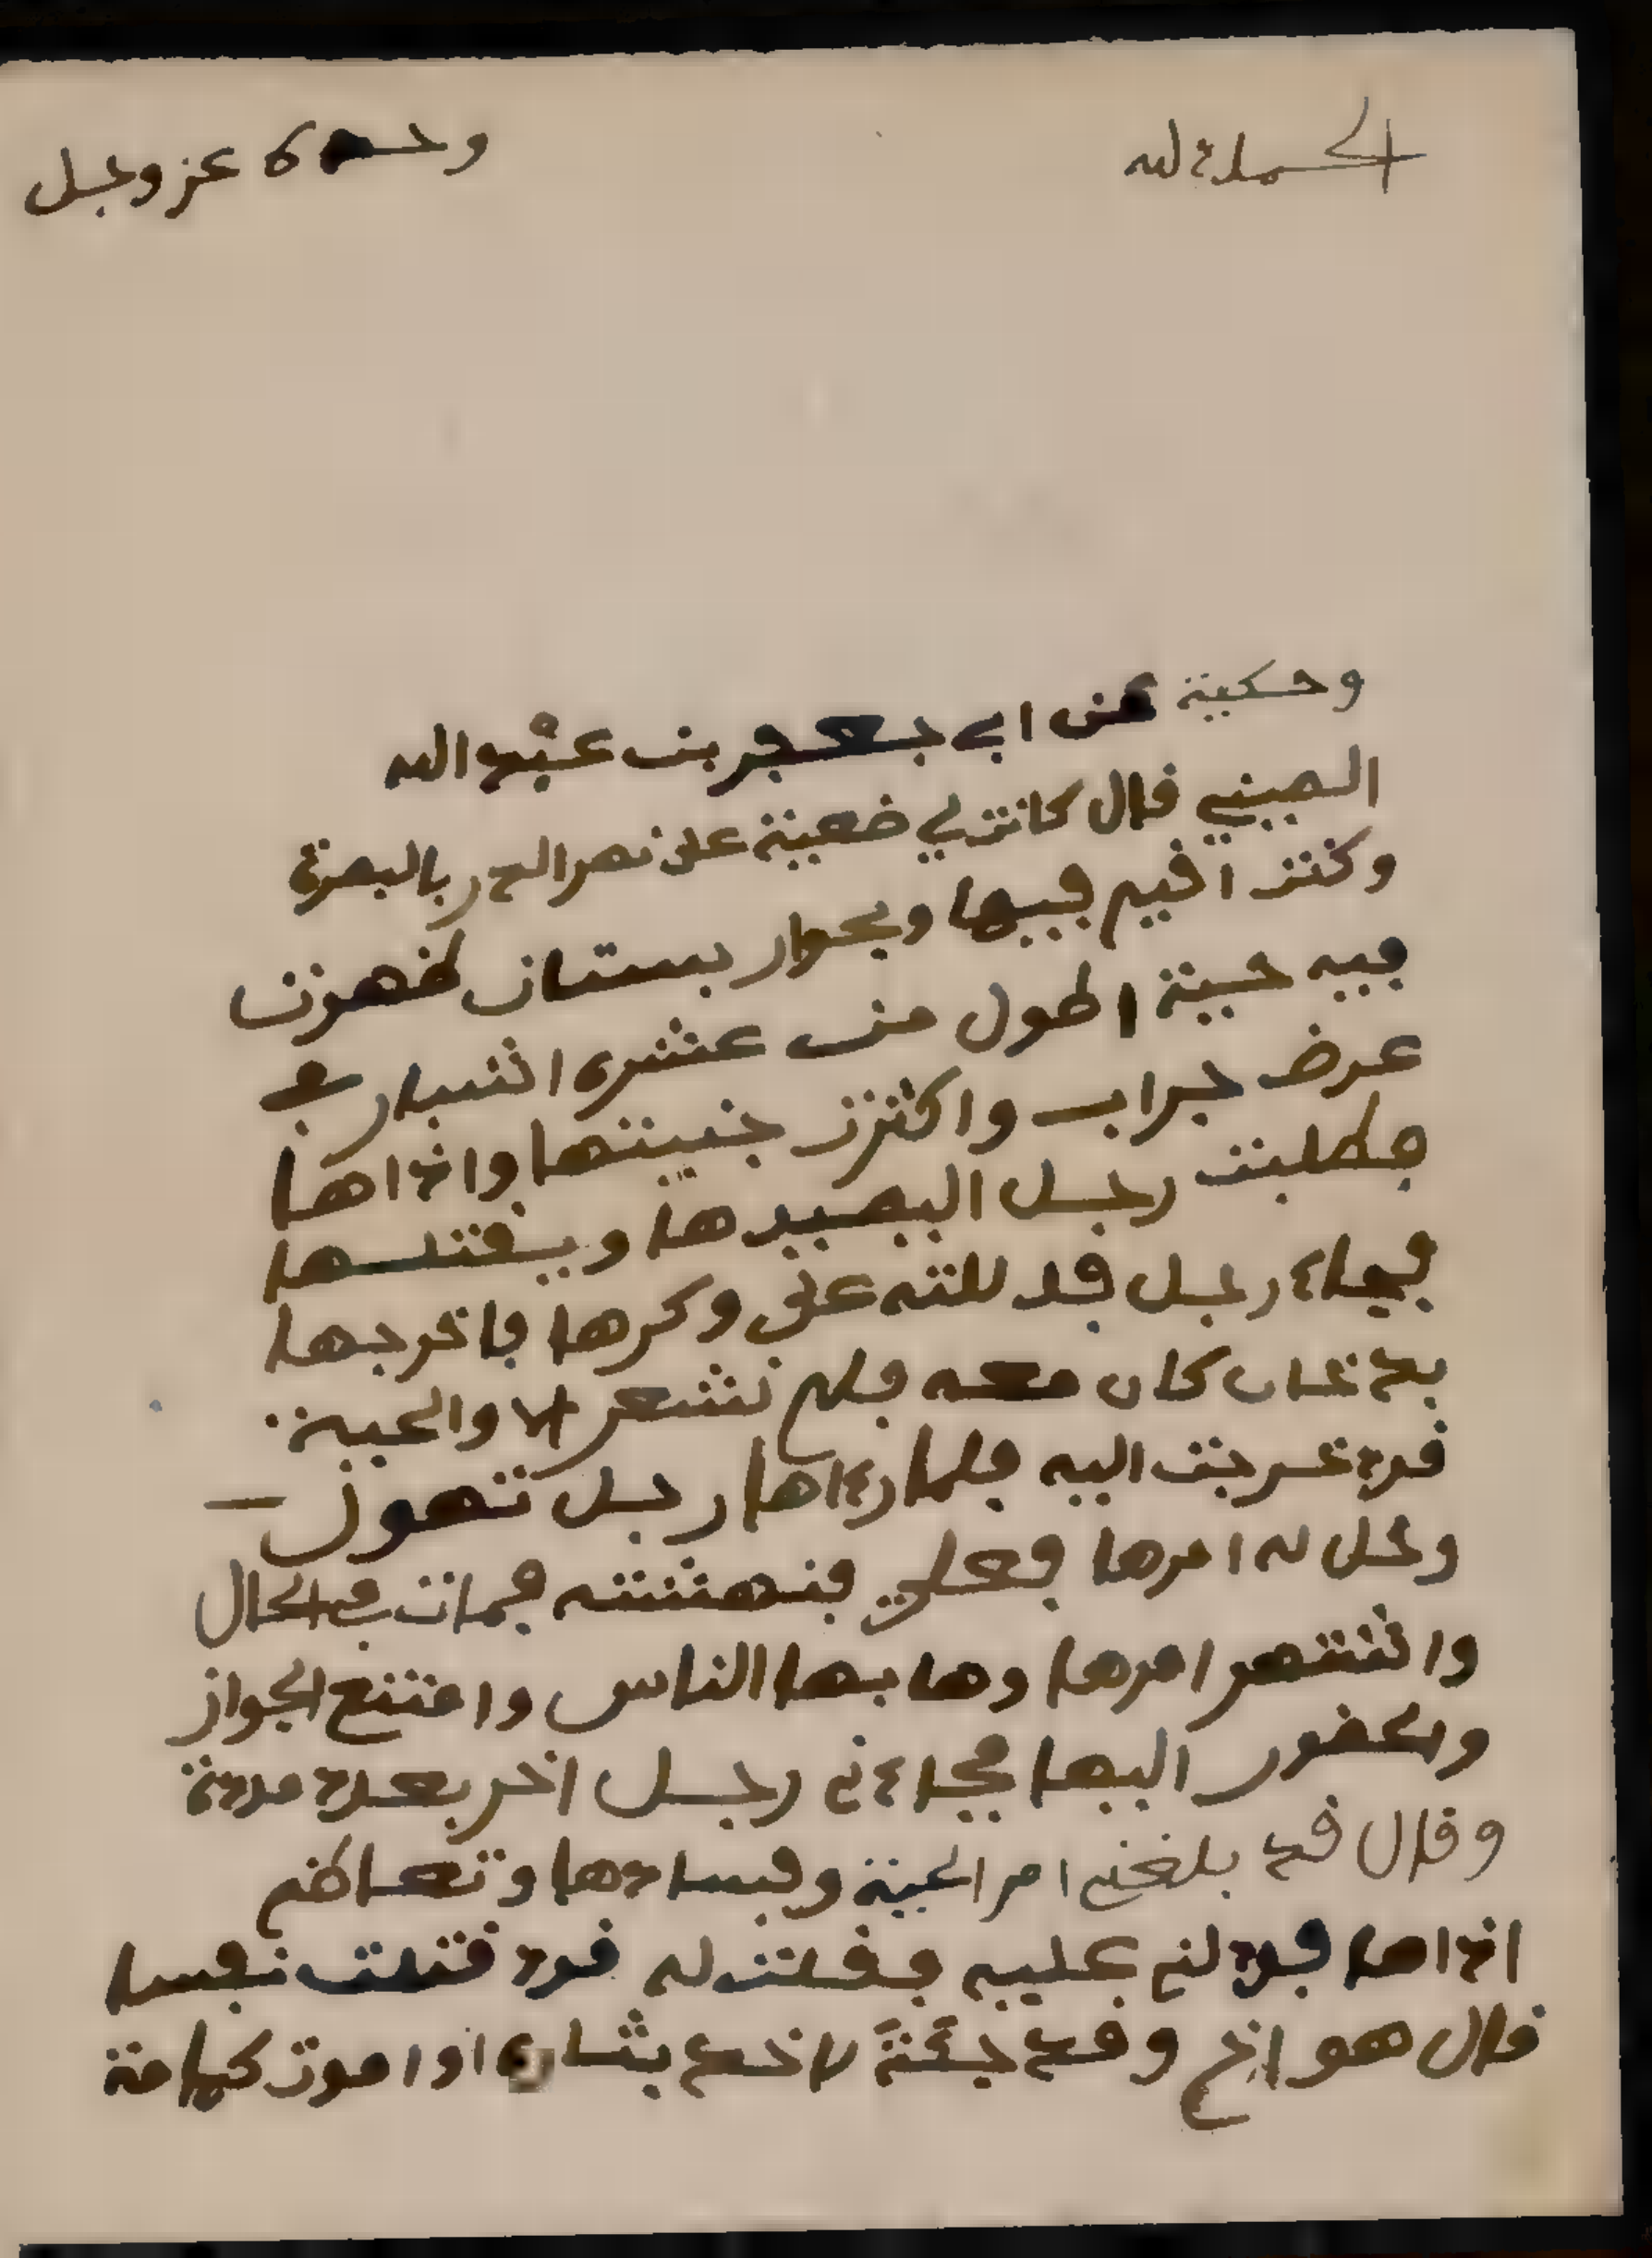 الحمد لله وحده عز وجل
وحكية عن ابي جعفر بن عبد الله
الصيني قال كانت لي ضعينة على نهر الدر بالبصرة
وكنت اقيم فيها وبجوار بستان ظهرت
فيه حية اطول من عشره اشبار في
عرض جراب واكثرت جنيتها واذاها
فطلبت رجل اليصيدها ويقتلها
فجاء رجل فدللته على وكرها فاخرجها
بدخان كان معه فلم نشعر الا والحية
قد خرجت اليه فلما رءاها رجل تهول
وخل له امرها فنهشته فمات في الحال
وانتشهر امرها وهابها الناس وامتنع الجواز
والحضور اليها فجاءني رجل اخر بعد مدة
وقال قد بلغني امر الحية وفسادها وتعاظم
اذاها فدلني عليه فقلت له قد قتلت نفسا
قال هو اخي وقد جئت لاخد بثاره او اموت كمامة